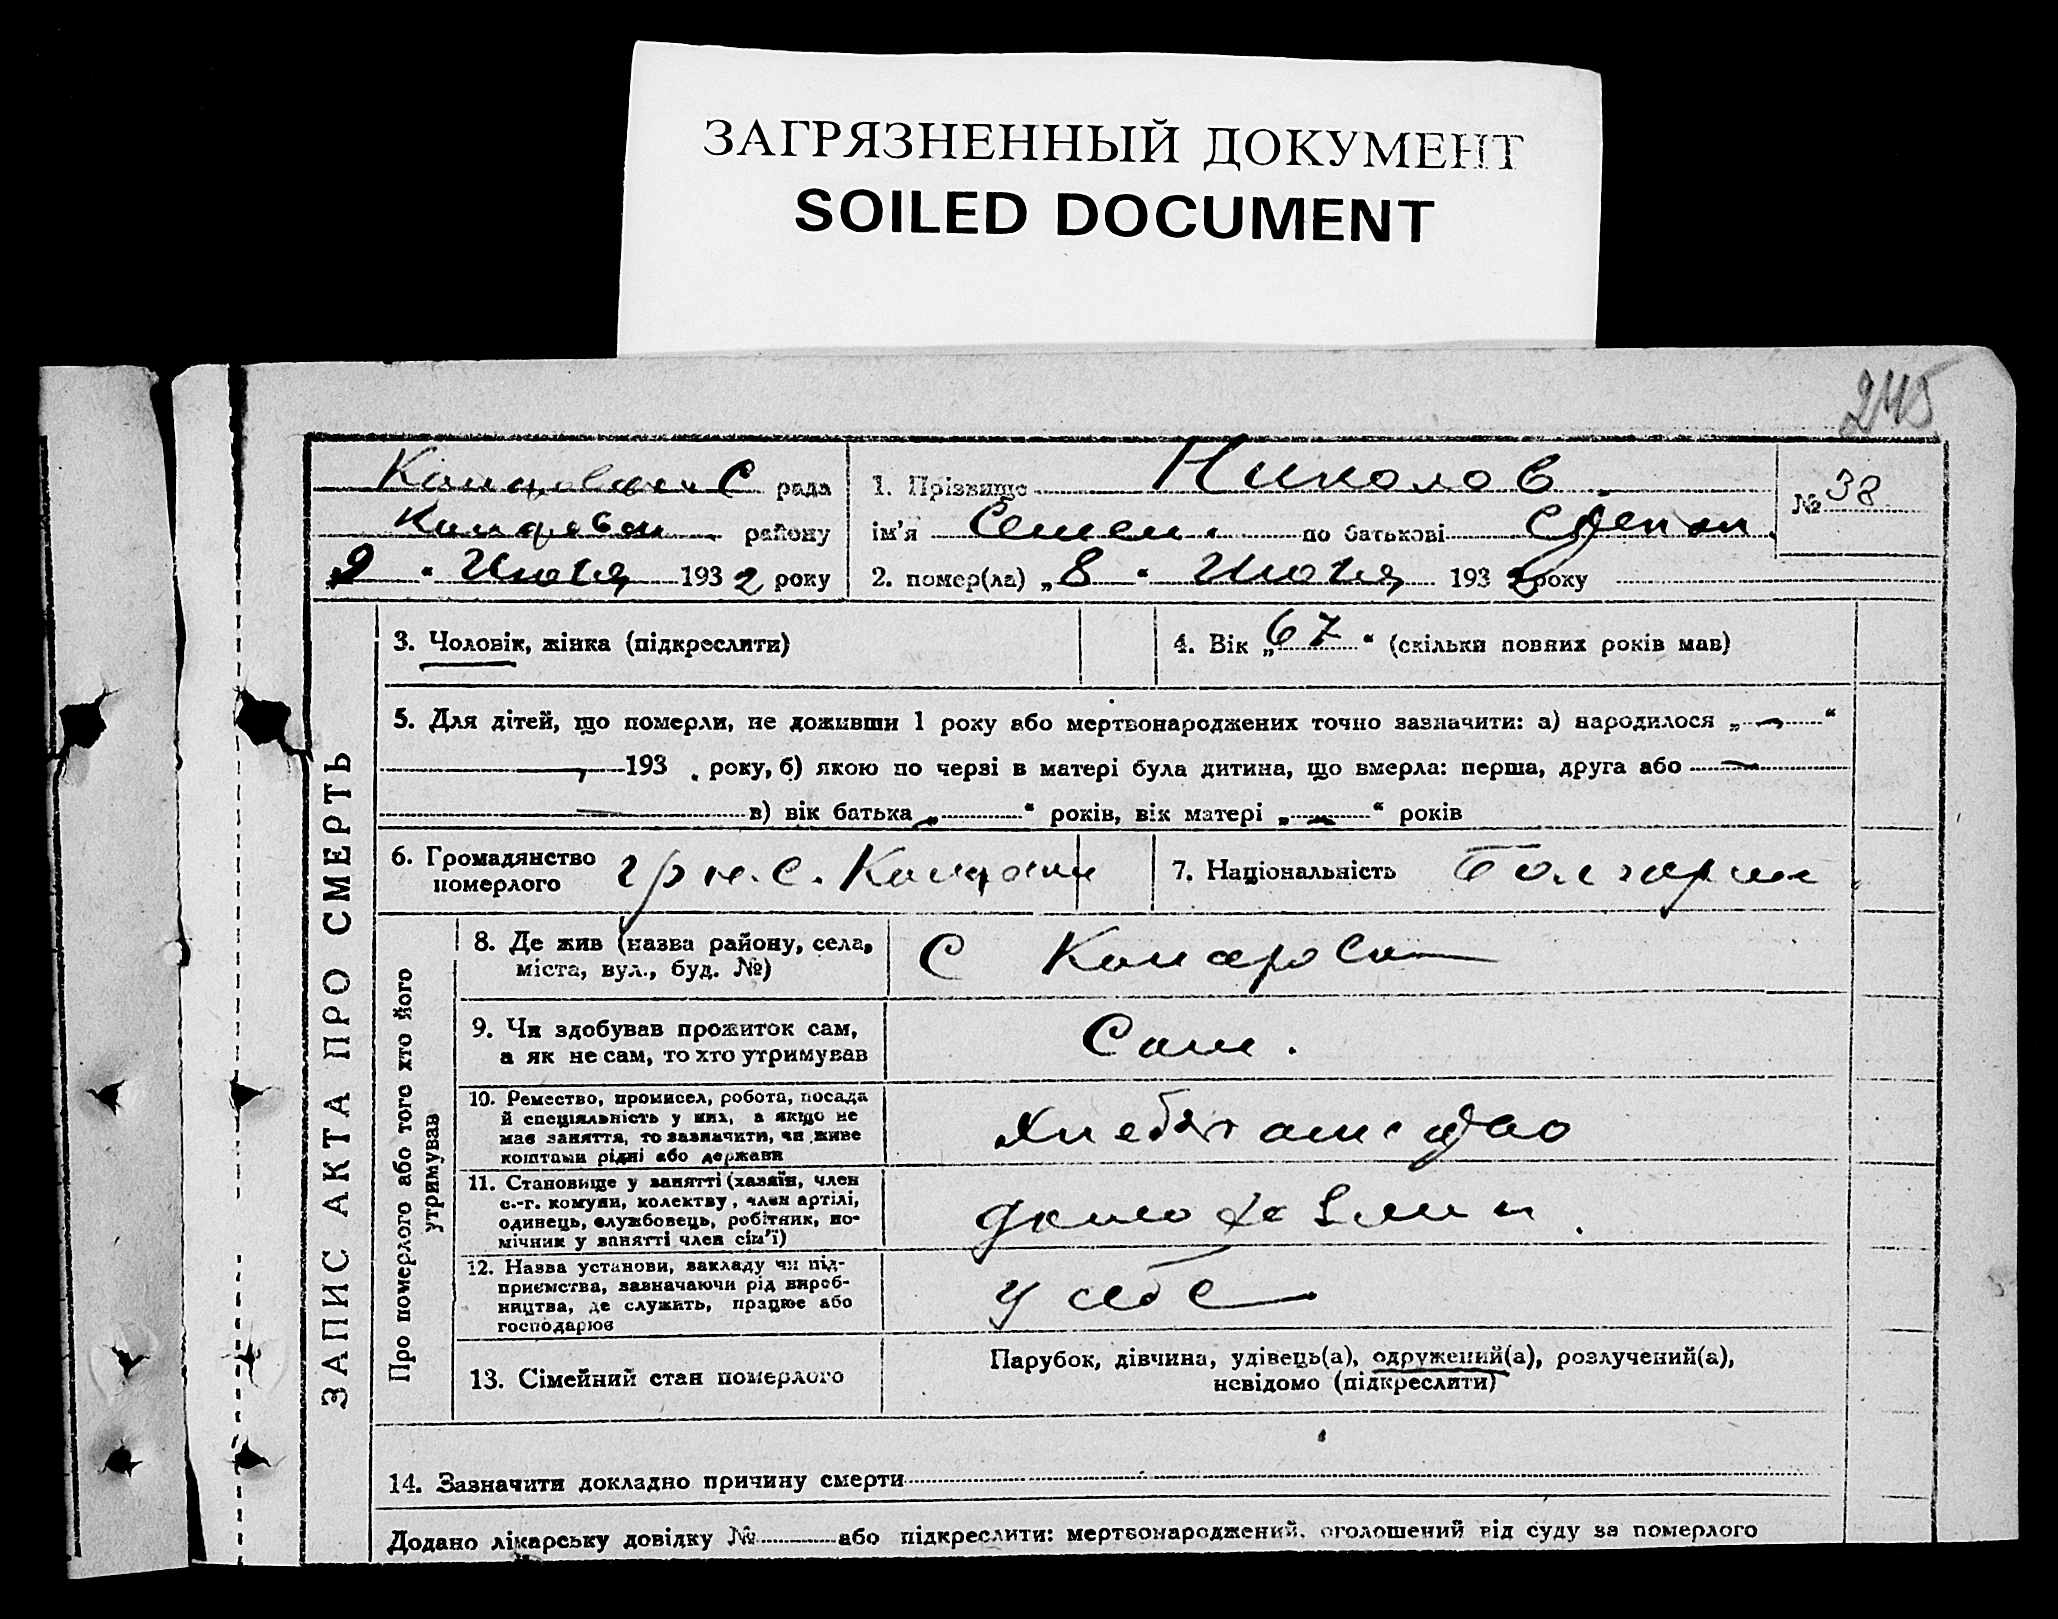 ЗАГРЯЗНЕННЫЙ ДОКУМЕНТ
SOILED DOCUMENT
245
С рада
району
9 " Июля 1932 року
1. Прізвище Николов
ім'я Семен по батькові Степан.
2. помер(ла) „8" Июля 1932 року
№ 38
ЗАПИС АКТА ПРО СМЕРТЬ
3. Чоловік, жінка (підкреслити)
4. Вік „67" (скільки повних років мав)
5. Для дітей, що померли, не доживши 1 року або мертвонароджених точно зазначити: а) народилося „-"
193 . року, б) якою по черзі в матері була дитина, що вмерла: перша, друга або —
— в) вік батька „-" років, вік матері „-" років
6. Громадянство
померлого
гр н. с.
7. Національність Болгарин
Про померлого або того хто його
утримував
8. Де жив (назва району, села,
міста, вул., буд. №)
С
9. Чи здобував прожиток сам,
а як не сам, то хто утримував
Сам.
10. Ремество, промисел, робота, посада
й спеціяльність у них, а якщо не
має заняття, то зазначити, чи живе
коштами рідні або держави
11. Становище у занятті (хазяїн, член
с.-г. комуни, колектву, член артілі,
одинець, службовець, робітник, по-
мічник у занятті член сім'ї)
12. Назва установи, закладу чи під-
приємства, зазначаючи рід вироб-
ництва, де служить, працює або
господарює
у себе
13. Сімейний стан померлого
Парубок, дівчина, удівець(а), одружений(а), розлучений(а),
невідомо (підкреслити)
14. Зазначити докладно причину смерти
Додано лікарську довідку № або підкреслити: мертвонароджений, оголошений від суду за померлого